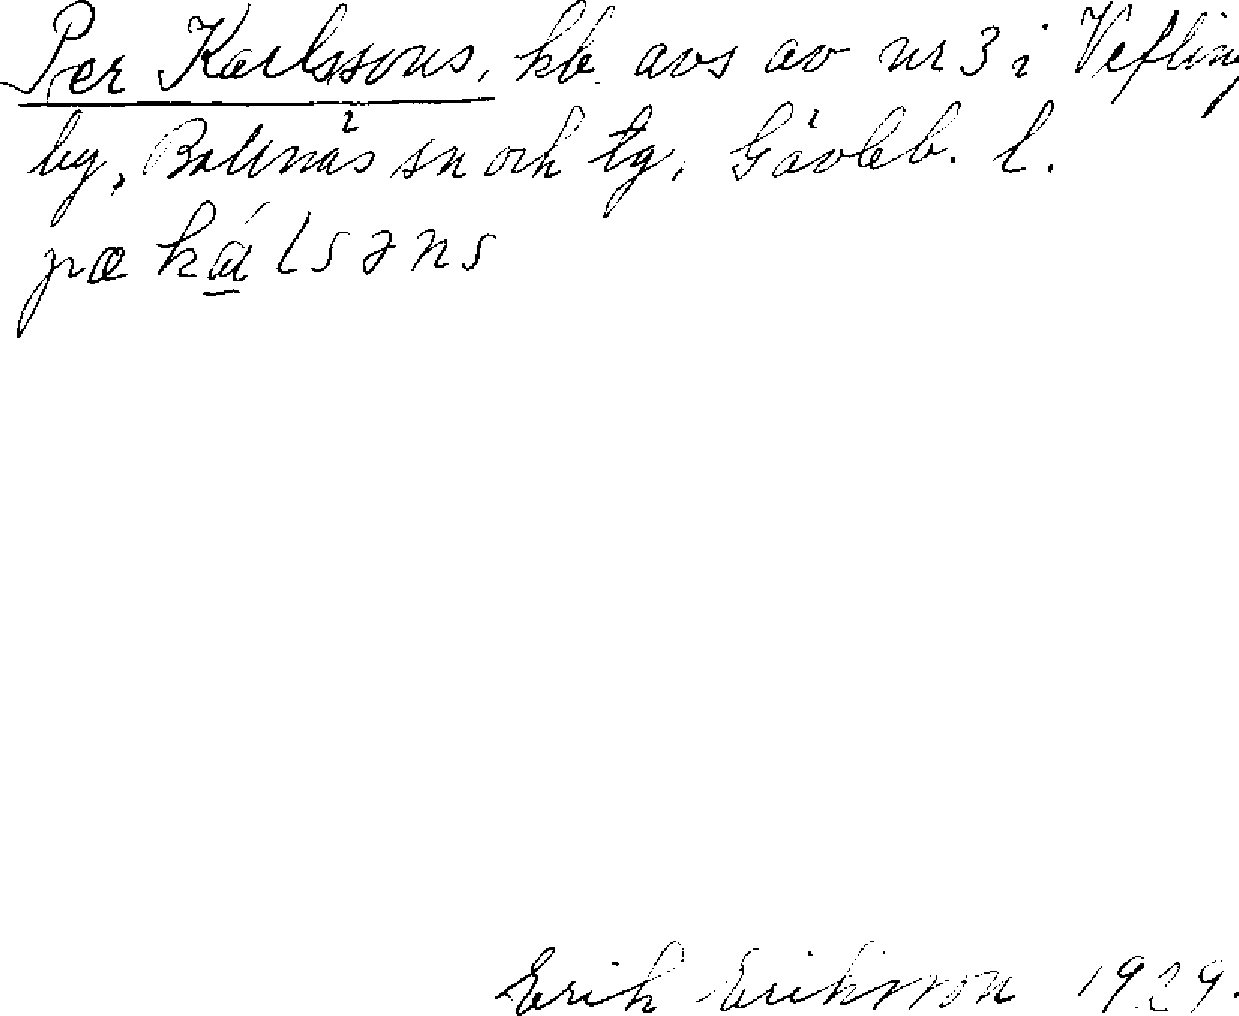 Per Karlssons, hb. avs av nr 3 i Vefling
by, Bollnäs sn och tg, Gävleb. l.
pæ kálsəns
Erik Eriksson 1929.